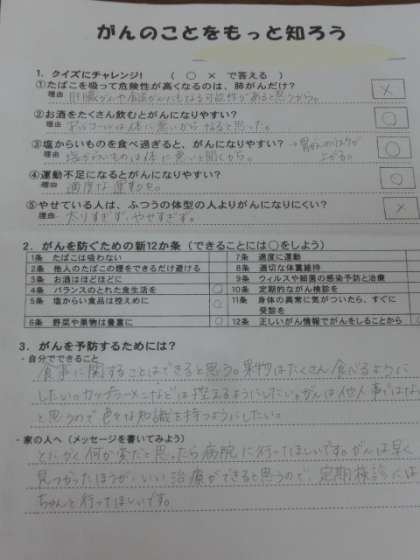 がんのことをもっと知ろう
1．クイズにチャレンジ！ （ ○ × で答える ）
①たばこを吸って危険性が高くなるのは、肺がんだけ？ ×
理由 肝臓がんや になる可能性があると思うから。
②お酒をたくさん飲むとがんになりやすい？ ○
理由 アルコールは体に悪いからなると思った。
③塩からいものを食べ過ぎると、がんになりやすい？ →胃がんのリスクが上がる。 ○
理由 塩からいものは体に悪いと聞くから。
④運動不足になるとがんになりやすい？ ○
理由 適度な運動を。
⑤やせている人は、ふつうの体型の人よりがんになりにくい？ ×
理由 太りすぎず、やせすぎず。
2．がんを防ぐための新12か条（できることには○をしよう）
1条 たばこは吸わない
2条 他人のたばこの煙をできるだけ避ける
3条 お酒はほどほどに
4条 バランスのとれた食生活を ○
5条 塩からい食品は控えめに ○
6条 野菜や果物は豊富に
7条 適度に運動
8条 適切な体重維持
9条 ウィルスや細菌の感染予防と治療
10条 定期的ながん検診を
11条 身体の異常に気がついたら、すぐに受診を
12条 正しいがん情報でがんをしることから
3．がんを予防するためには？
・自分でできること
食事に関することはできると思う。果物はたくさん食べるように
したい。カップラーメンなどは控えるようにしたい。がんは他人事ではない
と思うので色々な知識を持つようにしたい。
・家の人へ（メッセージを書いてみよう）
とにかく何か変だと思ったら病院に行ってほしいです。がんは早く
見つかったほうがいい治療ができると思うので、定期検診には
ちゃんと行ってほしいです。